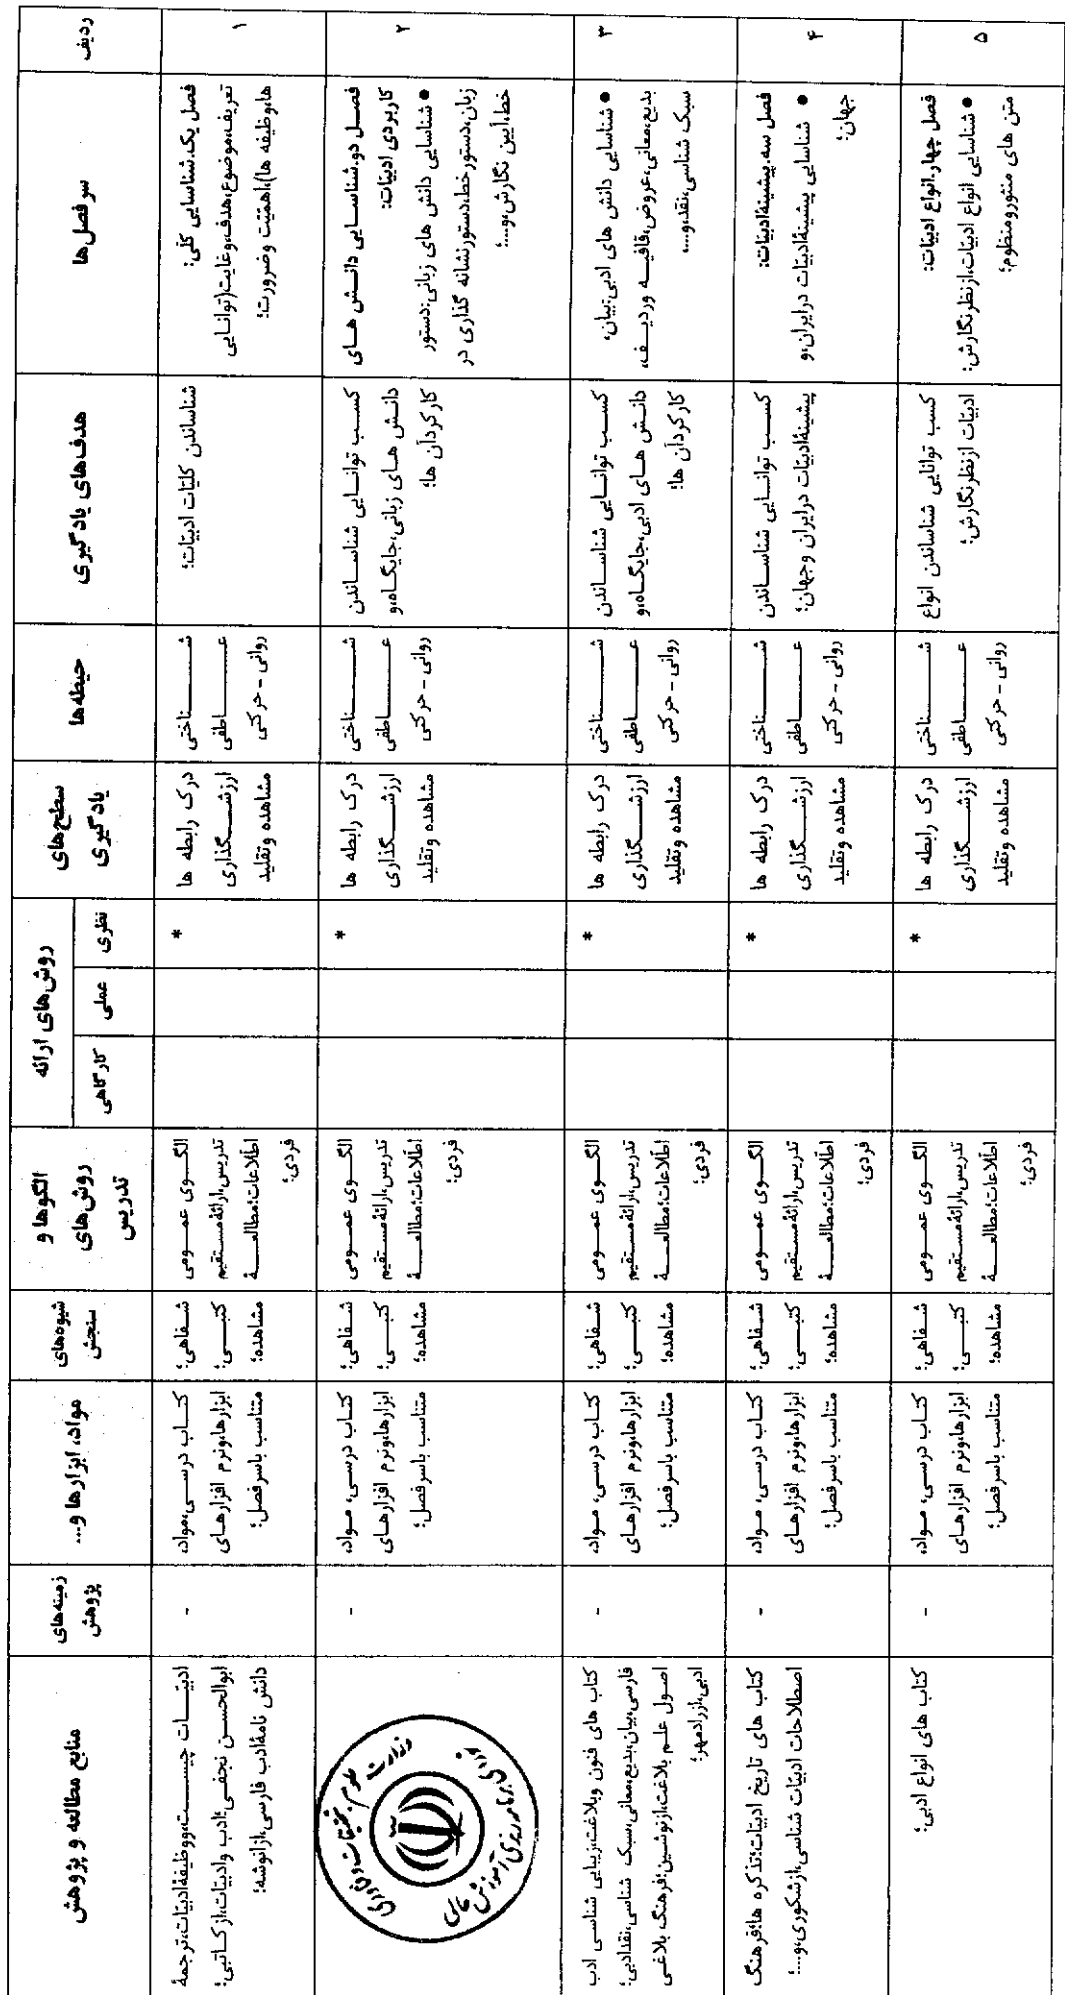 ردیف
سرفصل‌ها
هدف‌های یادگیری
حیطه‌ها
سطح‌های
یادگیری
روش‌های ارائه
نظری
عملی
کارگاهی
الگوها و
روش‌های
تدریس
شیوه‌های
سنجش
مواد، ابزارها و...
زمینه‌های
پژوهش
منابع مطالعه و پژوهش
۱
فصل یک.شناسایی کلی:
تعریف،موضوع،هدف،وغایت(توانایی
ها،وظیفه ها)،اهمّیّت وضرورت؛
شناساندن کلیّات ادبیّات؛
شناختی
عاطفی
روانی - حرکتی
درک رابطه ها
ارزشگذاری
مشاهده وتقلید
*
الگوی عمومی
تدریس،ارائهٔ مستقیم
اطّلاعات؛مطالعهٔ
فردی؛
شفاهی؛
کتبی؛
مشاهده؛
کتاب درسی،مواد،
ابزارها،ونرم افزارهای
متناسب باسرفصل؛
-
ادبیّات چیست،ووظیفهٔ ادبیّات،ترجمهٔ
ابوالحسن نجفی؛ادب وادبیّات،ازکاتبی؛
دانش نامهٔ ادب فارسی،ازانوشه؛
۲
فصل دو.شناسایی دانش های
کاربردی ادبیّات:
● شناسایی دانش های زبانی:دستور
زبان،دستورخط،دستورنشانه گذاری در
خط،آیین نگارش،و...؛
کسب توانایی شناساندن
دانش های زبانی،جایگاه،و
کارکردآن ها؛
شناختی
عاطفی
روانی - حرکتی
درک رابطه ها
ارزشگذاری
مشاهده وتقلید
*
الگوی عمومی
تدریس،ارائهٔ مستقیم
اطّلاعات؛مطالعهٔ
فردی؛
شفاهی؛
کتبی؛
مشاهده؛
کتاب درسی، مواد،
ابزارها،ونرم افزارهای
متناسب باسرفصل؛
-
وزارت علوم تحقیقات و فناوری
شورای برنامه ریزی آموزش عالی
۳
● شناسایی دانش های ادبی:بیان،
بدیع،معانی،عروض،قافیه وردیف،
سبک شناسی،نقد،و...،
کسب توانایی شناساندن
دانش های ادبی،جایگاه،و
کارکردآن ها؛
شناختی
عاطفی
روانی - حرکتی
درک رابطه ها
ارزشگذاری
مشاهده وتقلید
*
الگوی عمومی
تدریس،ارائهٔ مستقیم
اطّلاعات؛مطالعهٔ
فردی؛
شفاهی؛
کتبی؛
مشاهده؛
کتاب درسی، مواد،
ابزارها،ونرم افزارهای
متناسب باسرفصل؛
-
کتاب های فنون وبلاغت،زیبایی شناسی ادب
فارسی،بیان،بدیع،معانی،سبک شناسی،نقدادبی؛
اصول علم بلاغت،ازنوشین؛فرهنگ بلاغی
ادبی،ازرادمهر؛
۴
فصل سه.پیشینهٔ ادبیّات:
● شناسایی پیشینهٔ ادبیّات درایران،و
جهان؛
کسب توانایی شناساندن
پیشینهٔ ادبیّات درایران وجهان؛
شناختی
عاطفی
روانی - حرکتی
درک رابطه ها
ارزشگذاری
مشاهده وتقلید
*
الگوی عمومی
تدریس،ارائهٔ مستقیم
اطّلاعات؛مطالعهٔ
فردی؛
شفاهی؛
کتبی؛
مشاهده؛
کتاب درسی، مواد،
ابزارها،ونرم افزارهای
متناسب باسرفصل؛
-
کتاب های تاریخ ادبیّات؛تذکره ها؛فرهنگ
اصطلاحات ادبیّات شناسی،ازشکوری،و...؛
۵
فصل چهار.انواع ادبیّات:
● شناسایی انواع ادبیّات،ازنظرنگارش؛
متن های منثورومنظوم؛
کسب توانایی شناساندن انواع
ادبیّات ازنظرنگارش؛
شناختی
عاطفی
روانی - حرکتی
درک رابطه ها
ارزشگذاری
مشاهده وتقلید
*
الگوی عمومی
تدریس،ارائهٔ مستقیم
اطّلاعات؛مطالعهٔ
فردی؛
شفاهی؛
کتبی؛
مشاهده؛
کتاب درسی، مواد،
ابزارها،ونرم افزارهای
متناسب باسرفصل؛
-
کتاب های انواع ادبی؛